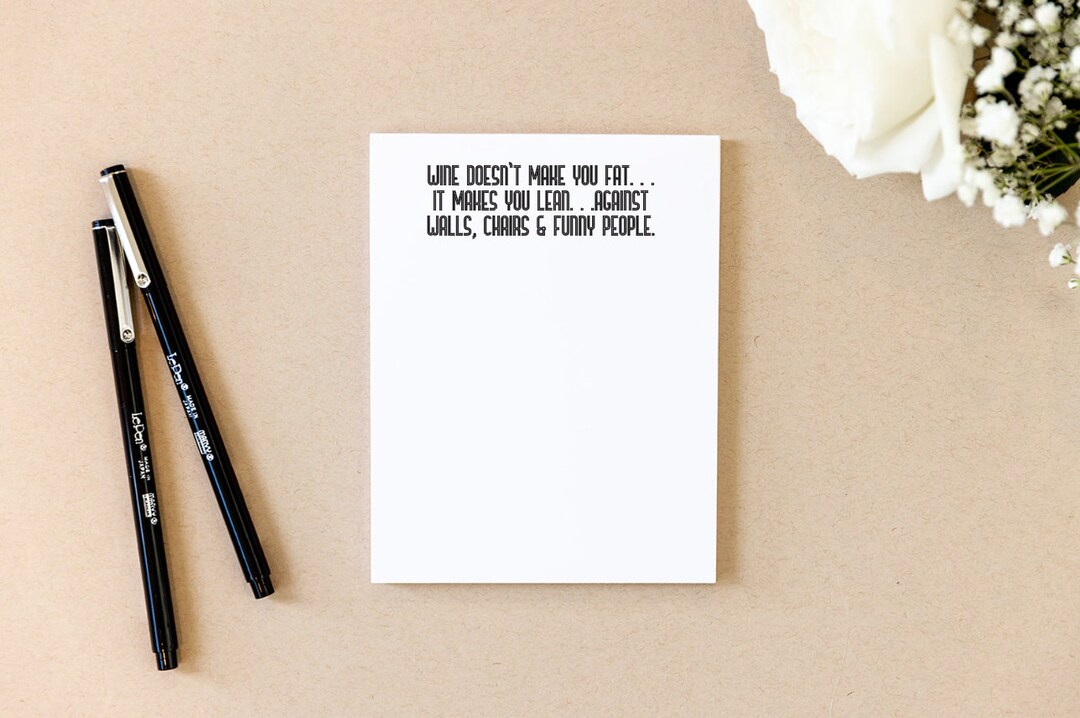 WINE DOESN'T MAKE YOU FAT. . .
IT MAKES YOU LEAN. . .AGAINST
WALLS, CHAIRS & FUNNY PEOPLE.
LePen
MADE IN
JAPAN
MARVY
LePen
MADE IN
JAPAN
MARVY